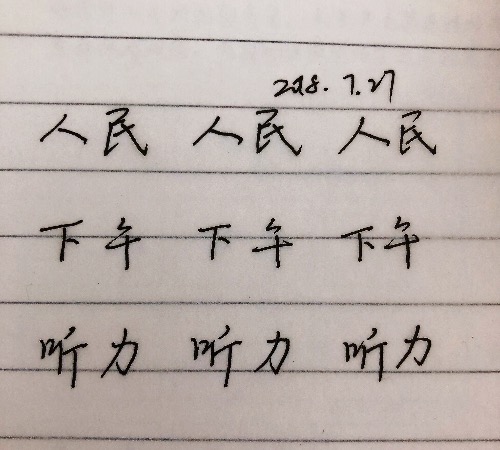 2018.7.27
人民 人民 人民
下午 下午 下午
听力 听力 听力